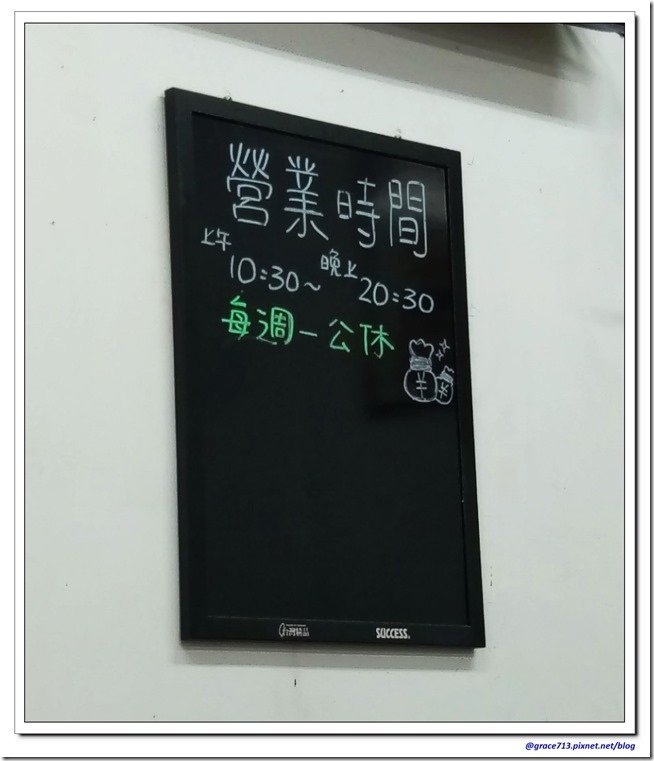 營業時間
上午10:30~晚上20:30
每週一公休
SUCCESS
@grace713.pixnet.net/blog